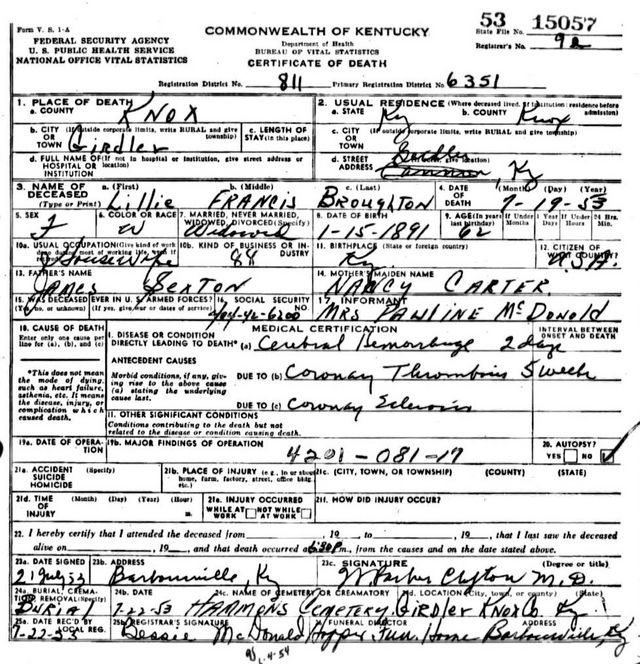 Form V. S. 1-A
FEDERAL SECURITY AGENCY
U. S. PUBLIC HEALTH SERVICE
NATIONAL OFFICE VITAL STATISTICS
COMMONWEALTH OF KENTUCKY
Department of Health
BUREAU OF VITAL STATISTICS
CERTIFICATE OF DEATH
53 15057
State File No.
Registrar's No. 92
Registration District No. 811 Primary Registration District No. 6351
1. PLACE OF DEATH
a. COUNTY KNOX
2. USUAL RESIDENCE (Where deceased lived. If institution: residence before admission)
a. STATE Ky b. COUNTY Knox
b. CITY (If outside corporate limits, write RURAL and give township)
OR
TOWN Girdler
c. LENGTH OF STAY (in this place)
c. CITY (If outside corporate limits, write RURAL and give township)
OR
TOWN
d. FULL NAME OF (If not in hospital or institution, give street address or location)
HOSPITAL OR
INSTITUTION
d. STREET
ADDRESS Ky
3. NAME OF DECEASED
(Type or Print)
a. (First) Lillie
b. (Middle) FRANCIS
c. (Last) BROUGHTON
4. DATE OF DEATH (Month) (Day) (Year)
7-19-53
5. SEX F
6. COLOR OR RACE W
7. MARRIED, NEVER MARRIED, WIDOWED, DIVORCED (Specify)
Widowed
8. DATE OF BIRTH
1-15-1891
9. AGE (In years last birthday) 62
If Under 1 Year Months Days
If Under 24 Hrs. Hours Min.
10a. USUAL OCCUPATION (Give kind of work done during most of working life, even if retired)
Housewife
10b. KIND OF BUSINESS OR INDUSTRY
88
11. BIRTHPLACE (State or foreign country)
Ky.
12. CITIZEN OF WHAT COUNTRY?
U.S.A.
13. FATHER'S NAME
JAMES SEXTON
14. MOTHER'S MAIDEN NAME
NANCY CARTER
15. WAS DECEASED EVER IN U. S. ARMED FORCES?
(Yes, no, or unknown) (If yes, give war or dates of service)
16. SOCIAL SECURITY NO.
404-42-6200
17. INFORMANT
MRS PAULINE McDonald
18. CAUSE OF DEATH
Enter only one cause per line for (a), (b), and (c)
MEDICAL CERTIFICATION
INTERVAL BETWEEN ONSET AND DEATH
I. DISEASE OR CONDITION
DIRECTLY LEADING TO DEATH* (a) Cerebral Hemorrhage 2 days
*This does not mean the mode of dying, such as heart failure, asthenia, etc. It means the disease, injury, or complication which caused death.
ANTECEDENT CAUSES
Morbid conditions, if any, giving rise to the above cause (a) stating the underlying cause last.
DUE TO (b) Coronary Thrombosis 5 weeks
DUE TO (c) Coronary Sclerosis
II. OTHER SIGNIFICANT CONDITIONS
Conditions contributing to the death but not related to the disease or condition causing death.
19a. DATE OF OPERATION
19b. MAJOR FINDINGS OF OPERATION
4201-081-17
20. AUTOPSY?
YES NO
21a. ACCIDENT (Specify)
SUICIDE
HOMICIDE
21b. PLACE OF INJURY (e.g., in or about home, farm, factory, street, office bldg., etc.)
21c. (CITY, TOWN, OR TOWNSHIP) (COUNTY) (STATE)
21d. TIME (Month) (Day) (Year) (Hour)
OF
INJURY m.
21e. INJURY OCCURRED
WHILE AT WORK NOT WHILE AT WORK
21f. HOW DID INJURY OCCUR?
22. I hereby certify that I attended the deceased from , 19 to , 19 , that I last saw the deceased
alive on , 19 , and that death occurred at m., from the causes and on the date stated above.
23a. DATE SIGNED
21 July 53
23b. ADDRESS
Barbourville, Ky
23c. SIGNATURE (Degree or title)
Clifton M.D.
24a. BURIAL, CREMATION, REMOVAL (Specify)
Burial
24b. DATE
7-22-53
24c. NAME OF CEMETERY OR CREMATORY
HAMMONS CEMETERY
24d. LOCATION (City, town, or county) (State)
GIRDLER KNOX Co. Ky.
25a. DATE REC'D BY LOCAL REG.
7-22-53
25b. REGISTRAR'S SIGNATURE
Bessie McDonald
FUNERAL DIRECTOR ADDRESS
Hopper Fun. Home Barbourville, Ky